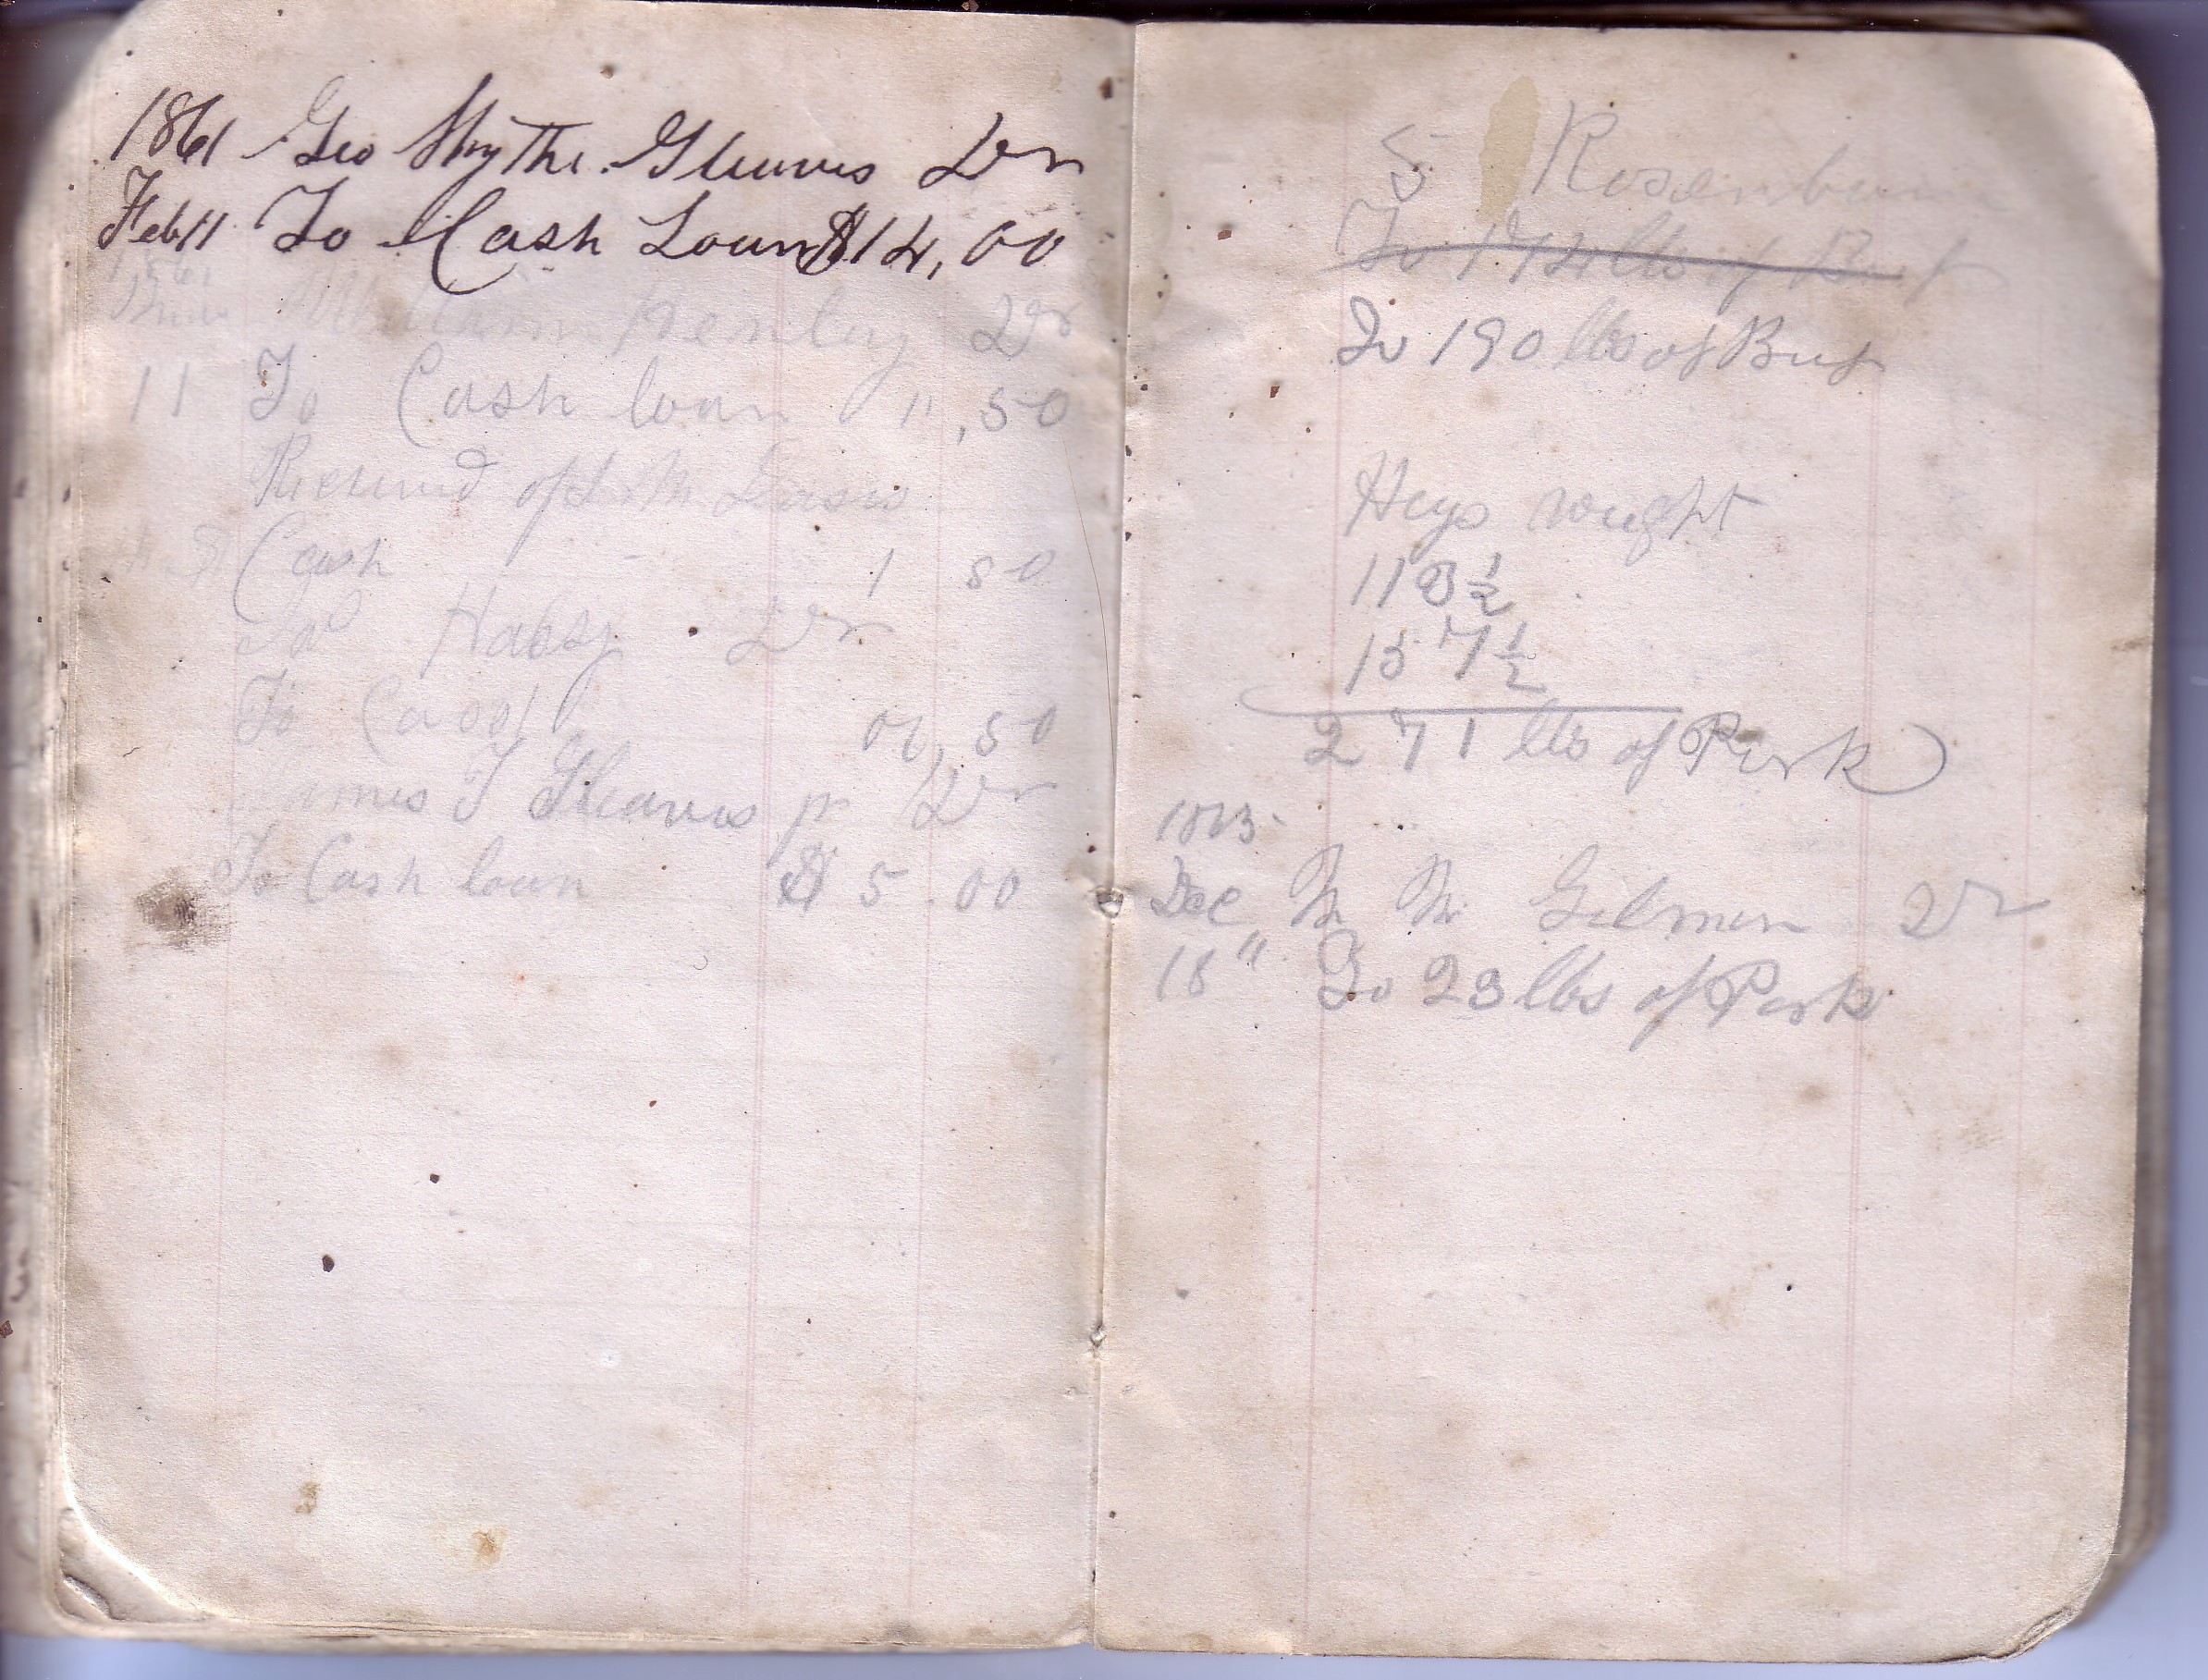 1861 Geo Wythe Gleaves Dr
Feb 11 To Cash Loan $14,00
1861
William Henley Dr
11 To Cash loan 11,50
Received of
Cash 1 50
Dr
To Cash ,50
James T Gleaves jr Dr
To Cash loan $ 5.00
S Rosenbaum
To 174 lbs of Beef
To 190 lbs of Beef
Hogs weight
113 1/2
157 1/2
271 lbs of Pork
1863
Dec Gilmen Dr
18" To 23 lbs of Pork